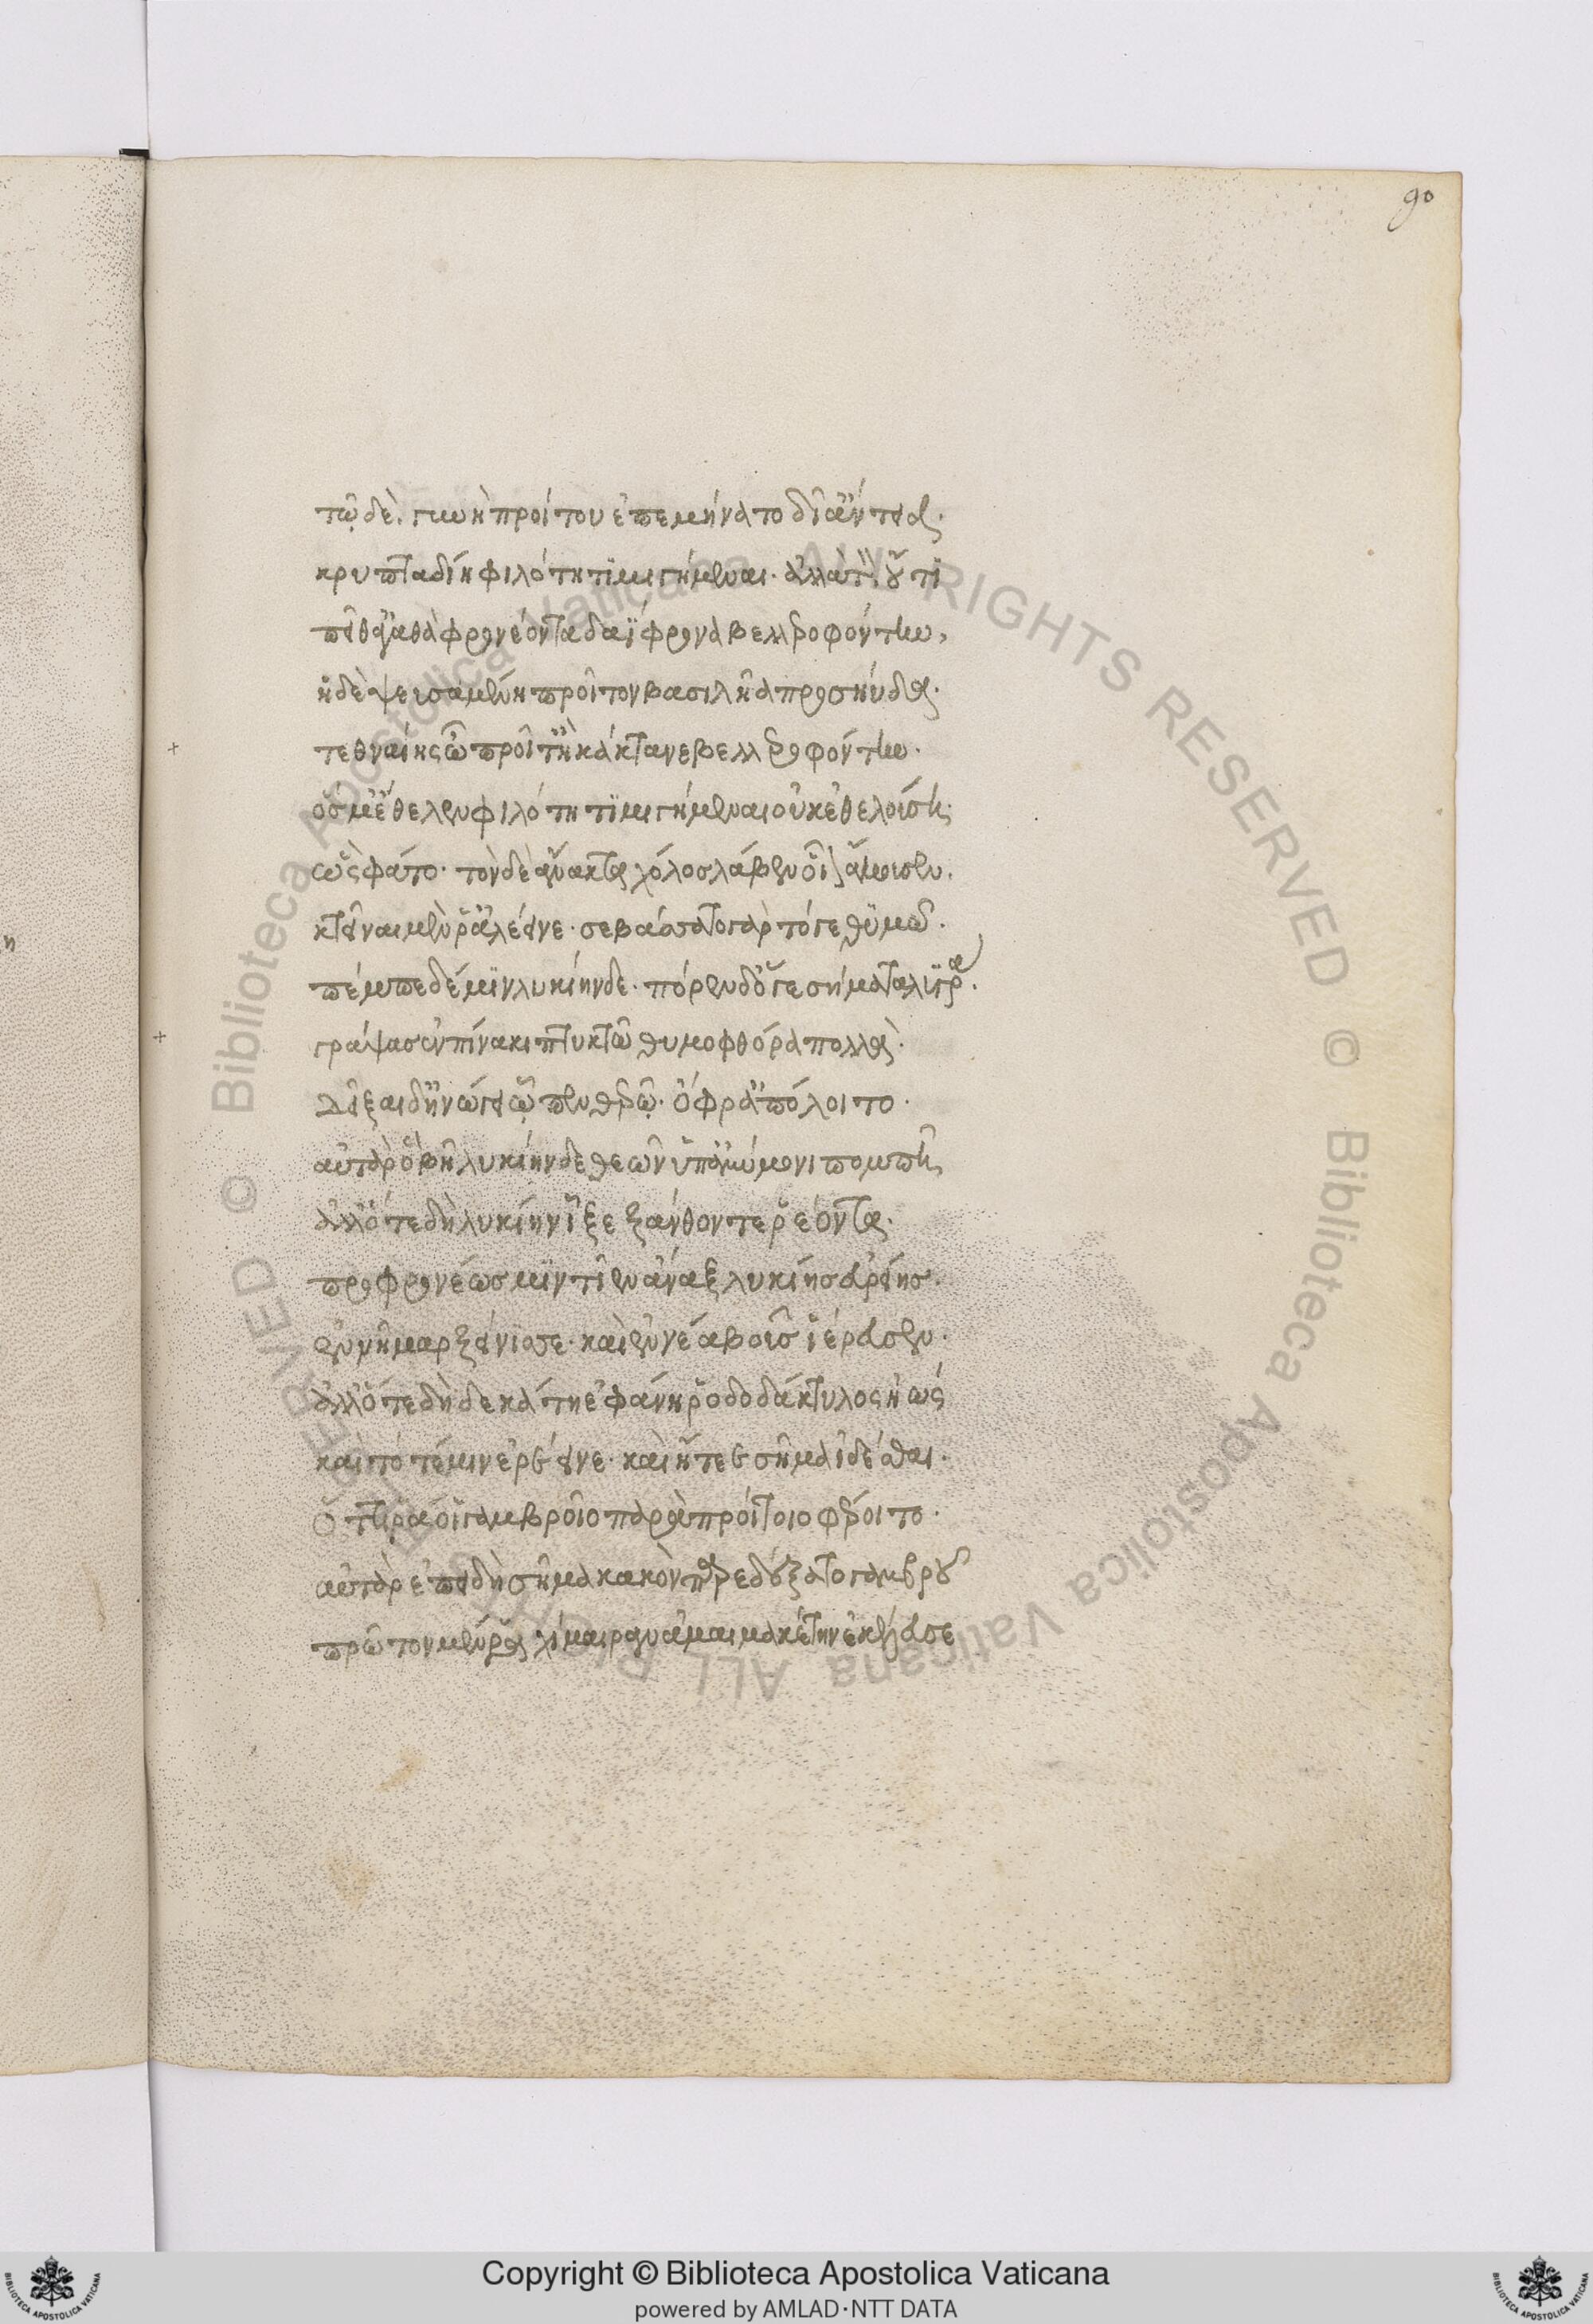 90
τῷ δὲ γυνὴ προίτου ἐπεμήνατο δῖ' ἄντεια·
κρυπταδίη φιλότητϊ μιγήμεναι· ἀλλὰ τὸν οὔ τϊ
πεῖθ' ἀγαθὰ φρονέοντα δαΐφρονα βελλεροφόντην,
ἡ δὲ ψευσαμένη προῖτον βασιλῆα προσηύδα·
τεθναίης ὦ προῖτ' ἢ κάκτανε βελλεροφόντην·
ὅς μ' ἔθελεν φιλότητϊ μιγήμεναι οὐκ ἐθελούση·
ὣς φάτο· τὸν δὲ ἄνακτα χόλος λάβεν οἷον ἄκουσεν.
κτεῖναι μέν ῥ' ἀλέεινε· σεβάσσατο γὰρ τόγε θϋμῶ·
πέμπε δέ μϊν λυκίηνδε· πόρεν δ' ὅγε σήματα λϋγρά·
γράψας ἐν πίνακι πτυκτῶ θυμοφθόρα πολλὰ·
δεῖξαι δ' ἠνώγει ᾧ πενθερῷ· ὄφρ' ἀπόλοιτο·
αὐτὰρ ὁ βῆ λυκίηνδε θεῶν ὑπ' ἀμύμονι πομπῆ
ἀλλ' ὅτε δὴ λυκίην ἷξε ξάνθον τε ῥέοντα·
προφρονέως μϊν τῖεν ἄναξ λυκίης εὐρείης·
ἐννῆμαρ ξείνϊσσε· καὶ ἐννέα βοῦς ἱέρευσεν·
ἀλλ' ὅτε δὴ δεκάτη ἐφάνη ῥοδοδάκτυλος ἠώς
καὶ τότέ μιν ἐρέεινε· καὶ ἤτεε σῆμα ἰδέσθαι·
ὅττί ῥά οἱ γαμβροῖο πάρα προίτοιο φέροιτο·
αὐτὰρ ἐπειδὴ σῆμα κακὸν παρεδέξατο γαμβροῦ
πρῶτον μέν ῥα χίμαιραν ἀμαιμακέτην ἐκέλευσε
Copyright © Biblioteca Apostolica Vaticana
powered by AMLAD·NTT DATA
© Biblioteca Apostolica Vaticana ALL RIGHTS RESERVED
© Biblioteca Apostolica Vaticana ALL RIGHTS RESERVED